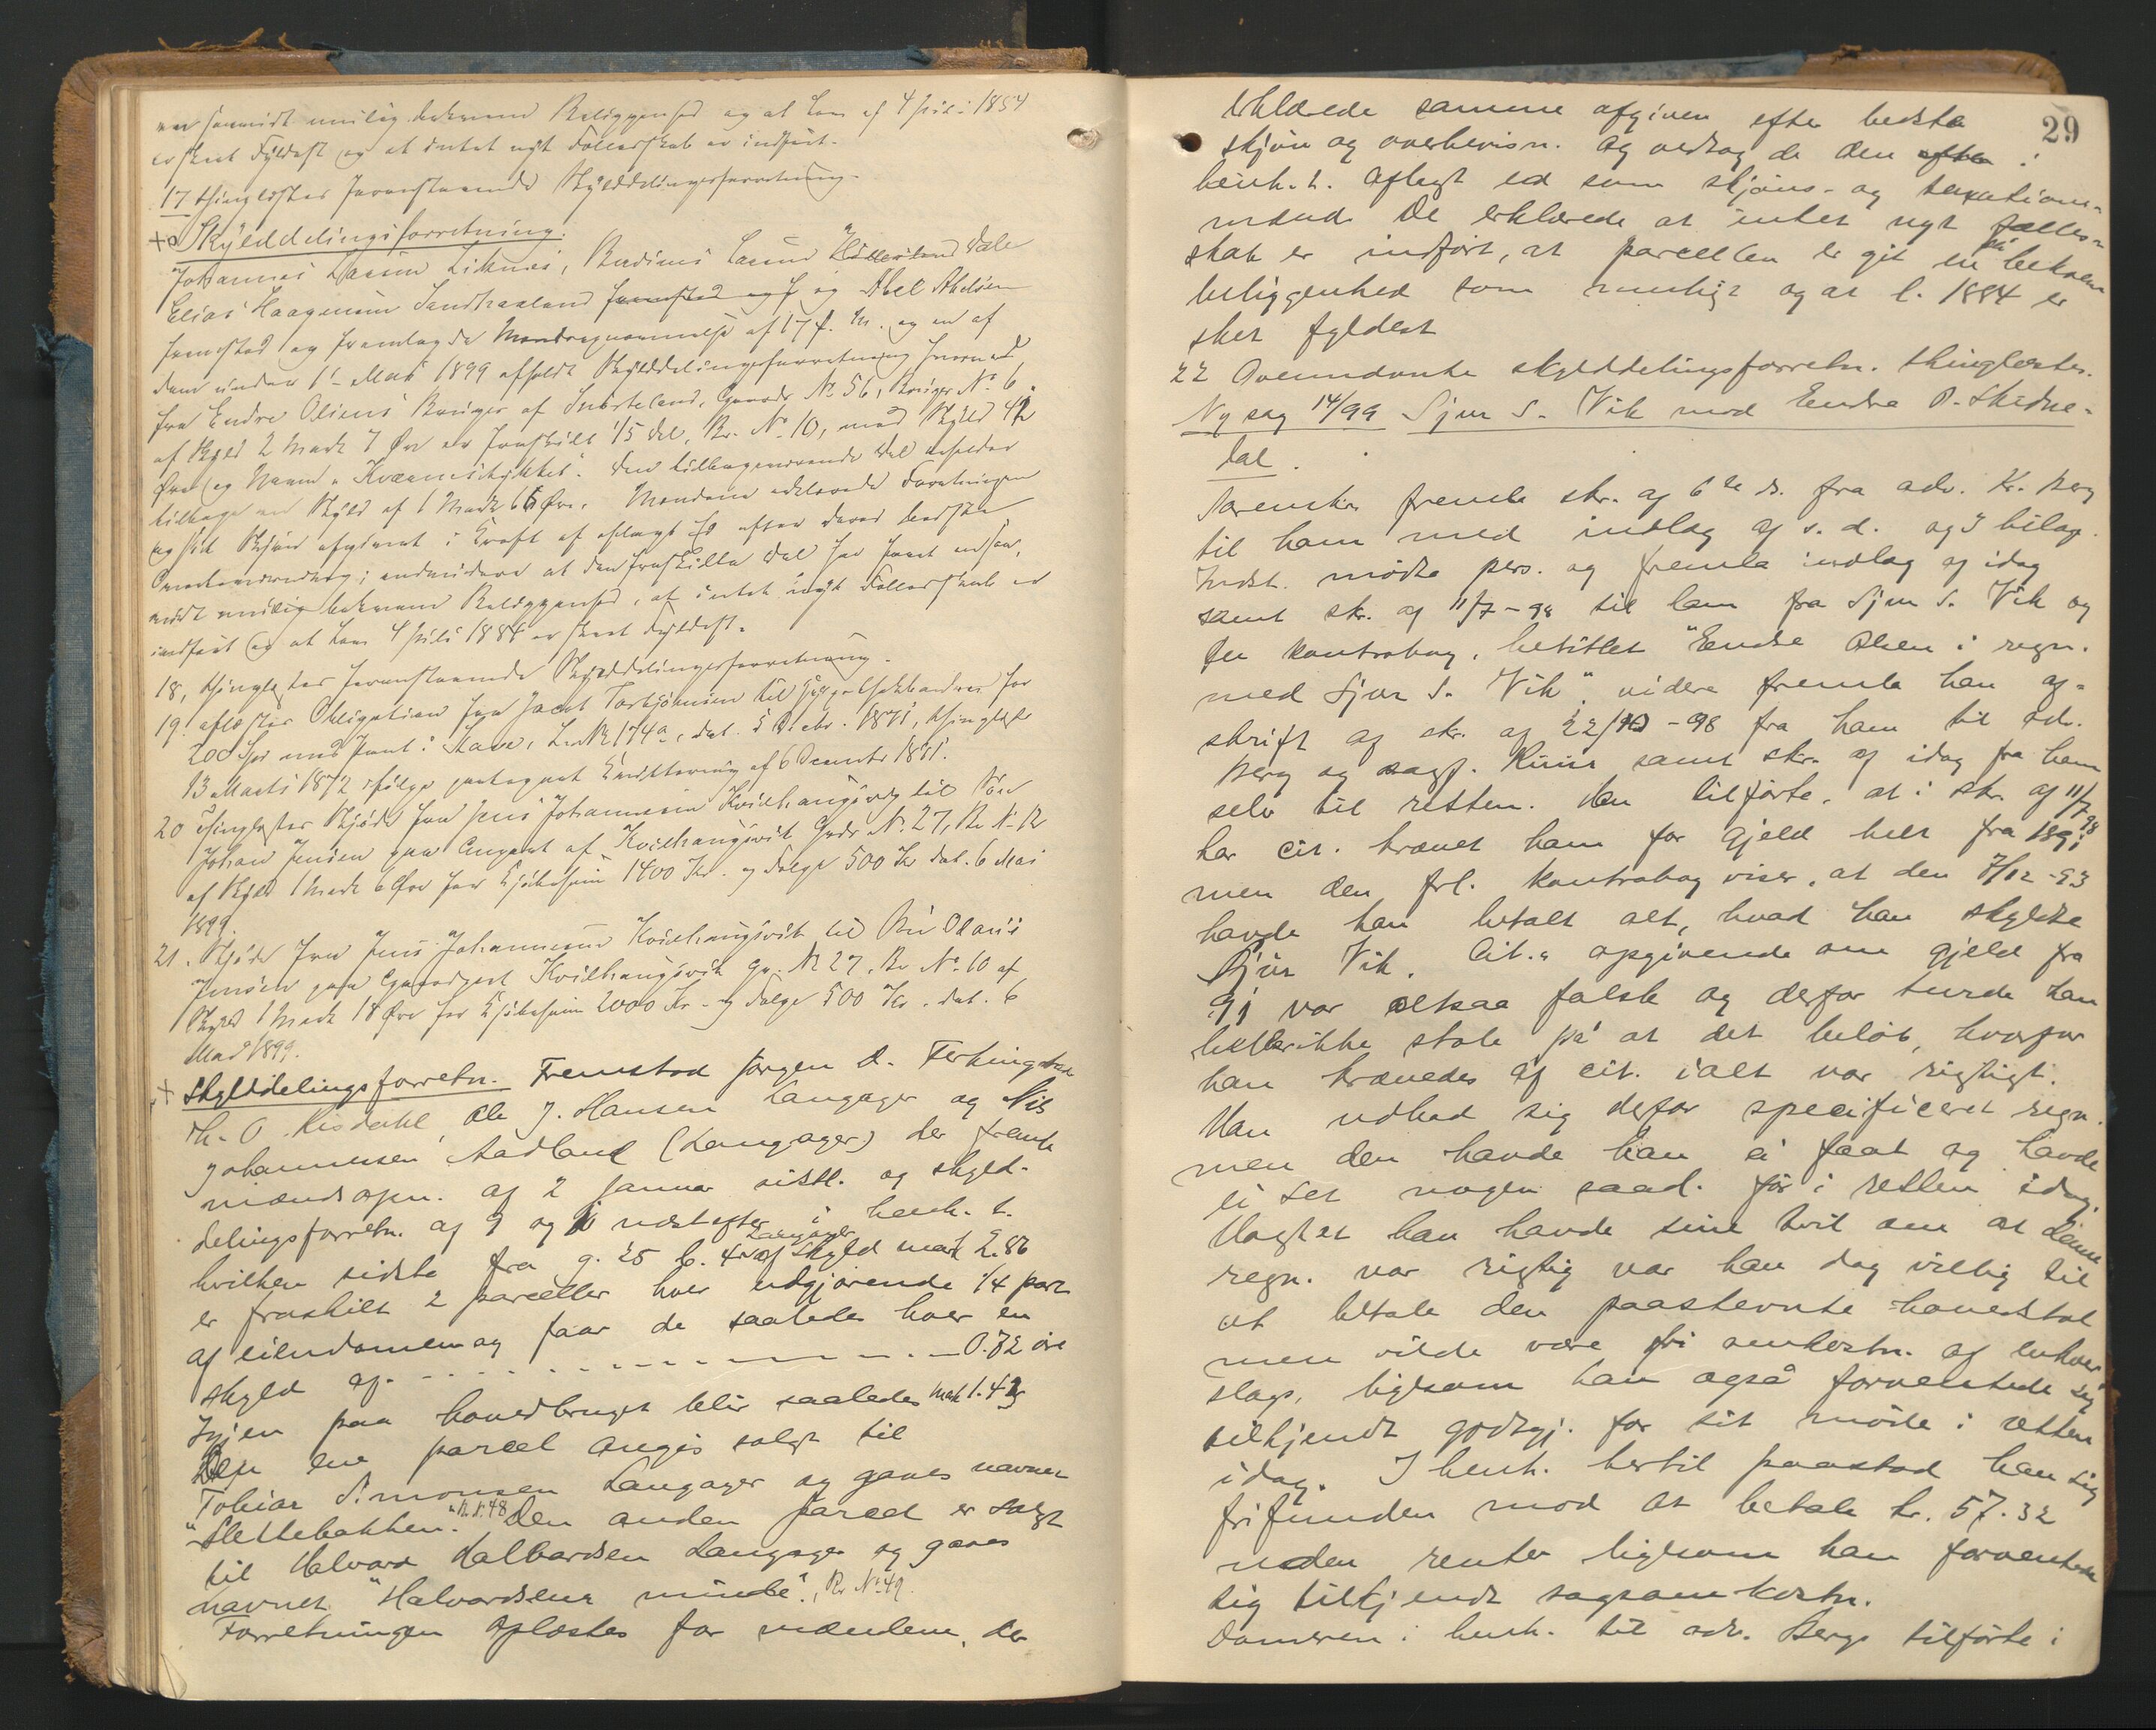 en saavidt mulig bekvem Beliggenhed og at Lov af 4 Juli 1884
er skeet Fyldest og at intet nyt Fællesskab er indført.
17 thinglæstes foranstaaende Skylddelingsforretning.
+ Skylddelingsforretning.
Johannes Larsen Liknes, Rasmus Larsen Dale
Elias Haagensen Sandhaaland og Abel Abelsen
fremstod og fremlagde Mandsopnævnelse af 17 f. M. og en af
dem under 1 Mai 1899 afholdt Skylddelingsforretning hvorved
fra Endre Olsens Bruger af Gaards No 56, Bruges No 6
af Skyld 2 Mark 7 Øre er fraskilt 1/5 Del, Br. No 10, med Skyld 42
Øre og Navn "Kværnstykket". Den tilbageværende Del beholder
tilbage en Skyld af 1 Mark 65 Øre. Mændene erklærede Forretningen
og sit Skjøn afgivet i Kraft af aflagt Ed efter deres bedste
Overbevisning; endvidere at den fraskilte Del har faaet en saa-
vidt mulig bekvem Beliggenhed, at intet nyt Fællesskab er
indført og at Lov 4 Juli 1884 er skeet Fyldest.
18, thinglæstes foranstaaende Skylddelingsforretning.
19. aflæstes Obligation fra Jacob Torbjørnsen til for
200 Spd med Pant i L. No 174a, dat. 5 Decbr. 1871, thinglæst
13 Marts 1872 ifølge paategnet Qvittering af 6 December 1881.
20 thinglæstes Skjøde fra Jens Johannesen Kvilhaugsvik til Søn
Johan Jensen paa Engepart af Kvilhaugsvik Grds No. 27, Br No
af Skyld 1 Mark 6 Øre for Kjøbesum 1400 Kr. og Følge 500 Kr dat. 6 Mai
1899.
21. Skjøde fra Jens Johannesen Kvilhaugsvik til Olaus
Jensen paa Gaardpart Kvilhaugsvik Gr. No 27, Br No. 10 af
Skyld 1 Mark 18 Øre for Kjøbesum 2000 Kr. og Følge 500 Kr. dat. 6
Mai 1899.
+ Skylddelingsforretn. Fremstod Jørgen D. Ferkingstad
Th. O. Risdahl, Ole J. Hansen Langager og Nils
Johannesen Aadland (Langager) der freml.
mændsopn. af 2 januar sistl. og skyld-
delingsforretn. af 9 og 10 næstefter i henh. t.
hvilken sidste fra g. 25 b. 4 Langager af skyld mark 2.86
er fraskilt 2 parceller hver udgjørende 1/4 part
af eiendommen og faar de saaledes hver en
skyld af - - - - - - - - - - - - 0.72 øre
Igjen paa hovedbruget blir saaledes mark 1.43
Den ene parcel angis solgt til
Tobias Simonsen Langager og gaves navnet
"Slettebakken". B. N. 48 Den anden parcel er solgt
til Halvard Halvardsen Langager og gaves
navnet "Halvardsens minde". Br No 49.
Forretningen oplæstes for mændene, der
29
erklærede samme afgiven efter bedste
skjøn og overbevisn. og vedtog de den i
henh. t. aflagt ed som skjøns- og taxations-
mænd. De erklærede at intet nyt fælles-
skab er indført, at parcellen er git en så bekvem
beliggenhed som muligt og at l. 1884 er
sket fyldest
22 Ovennævnte skylddelingsforretn. thinglæstes.
Ny sag 14/99 Sjur S. Vik mod Endre O. Skedne-
dal.
Sorenskr. fremla skr. af 6te ds. fra adv. Kr. Berg
til ham med indlæg af s. d. og 3 bilag.
Indst. mødte pers. og fremla indlæg af idag
samt skr. af 11/7-98 til ham fra Sjur S. Vik og
en kontrabog, betitlet "Endre Olsen i regn.
med Sjur S. Vik". videre fremla han af-
skrift af skr. af 22/10-98 fra ham til adv.
Berg og sagf. samt skr. af idag fra ham
selv til retten. Han tilførte, at i skr. af 11/7 98
har cit. krævet ham for gjeld helt fra 1891
men den frl. kontrabog viser, at den 7/12-93
havde han betalt alt, hvad han skyldte
Sjur Vik. Cit.s opgivende om gjeld fra
91 var altsaa falsk og derfor turde han
heller ikke stole på at det beløb, hvorfor
han krævedes af cit. ialt var rigtigt.
Han udbad sig derfor specificeret regn.
men den havde han ei faat og havde
ei set nogen saad. før i retten idag.
Uagtet han havde sine tvil om at denne
regn. var rigtig var han dog villig til
at betale den paastevnte hovedstol
men vilde være fri omkostn. af enhver
slags, ligesom han også forventede sig
tilkjendt godtgj. for sit møde i retten
idag. I henh. hertil paastod han sig
frifunden mod at betale kr. 57.32
uden renter ligesom han forventede
sig tilkjendt sagsomkostn.
Domeren i henh. til adv. Bergs tilførte i